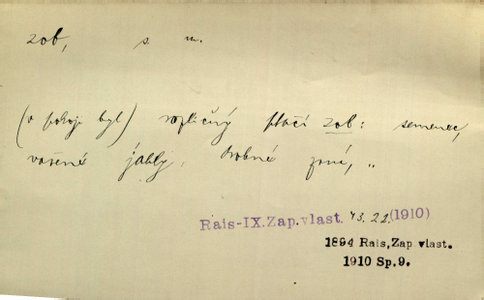 zob, s. m.
(v pokoji byl) rozličný ptačí zob: semenec,
vařené jahly, drobné zrní, „
Rais-IX.Zap.vlast. 43.22.(1910)
1894 Rais,Zap vlast.
1910 Sp.9.